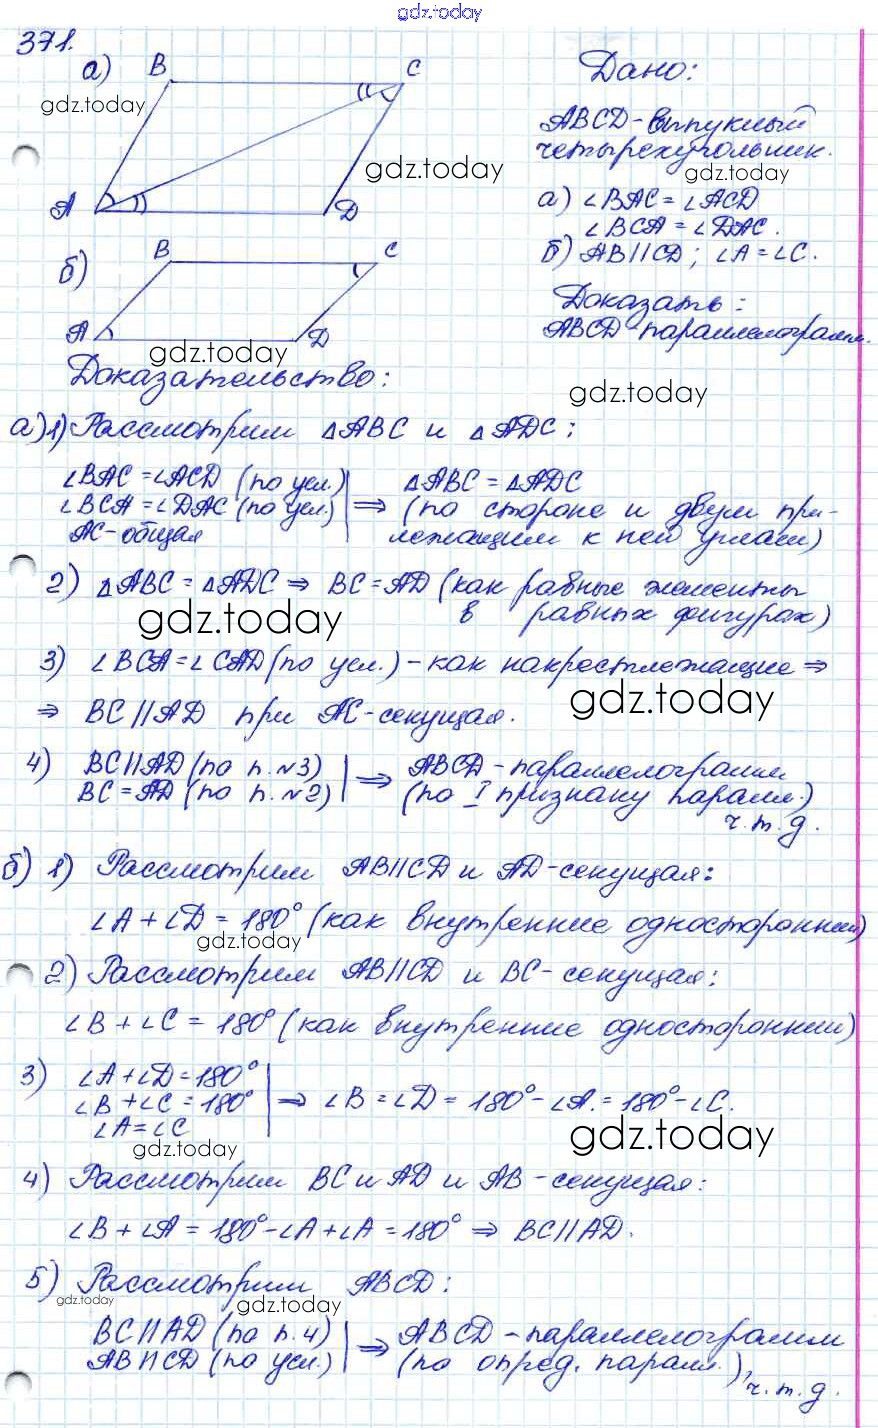 gdz.today
371.
а)
B
C
A
D
gdz.today
gdz.today
б)
B
C
A
D
gdz.today
Дано:
ABCD - выпуклый
четырехугольник.
gdz.today
а) ∠BAC = ∠ACD
∠BCA = ∠DAC.
б) AB||CD; ∠A = ∠C.
Доказать:
ABCD - параллелограмм.
gdz.today
Доказательство:
а) 1) Рассмотрим △ABC и △ADC:
∠BAC = ∠ACD (по усл.)
∠BCA = ∠DAC (по усл.)
AC - общая
⇒ △ABC = △ADC
(по стороне и двум при-
лежащим к ней углам)
2) △ABC = △ADC ⇒ BC = AD (как равные элементы
в равных фигурах)
gdz.today
3) ∠BCA = ∠CAD (по усл.) - как накрестлежащие ⇒
gdz.today
⇒ BC||AD при AC - секущая.
4) BC||AD (по п. №3)
BC = AD (по п. №2)
⇒ ABCD - параллелограмм
(по I признаку паралл.)
ч.т.д.
б) 1) Рассмотрим AB||CD и AD - секущая:
∠A + ∠D = 180° (как внутренние односторонние)
gdz.today
2) Рассмотрим AB||CD и BC - секущая:
∠B + ∠C = 180° (как внутренние односторонние)
3) ∠A + ∠D = 180°
∠B + ∠C = 180°
∠A = ∠C
⇒ ∠B = ∠D = 180° - ∠A. = 180° - ∠C.
gdz.today
gdz.today
4) Рассмотрим BC и AD и AB - секущая:
∠B + ∠A = 180° - ∠A + ∠A = 180° ⇒ BC||AD.
5) Рассмотрим ABCD:
gdz.today
gdz.today
BC||AD (по п. 4)
AB||CD (по усл.)
⇒ ABCD - параллелограмм
(по опред. паралл.),
ч.т.д.